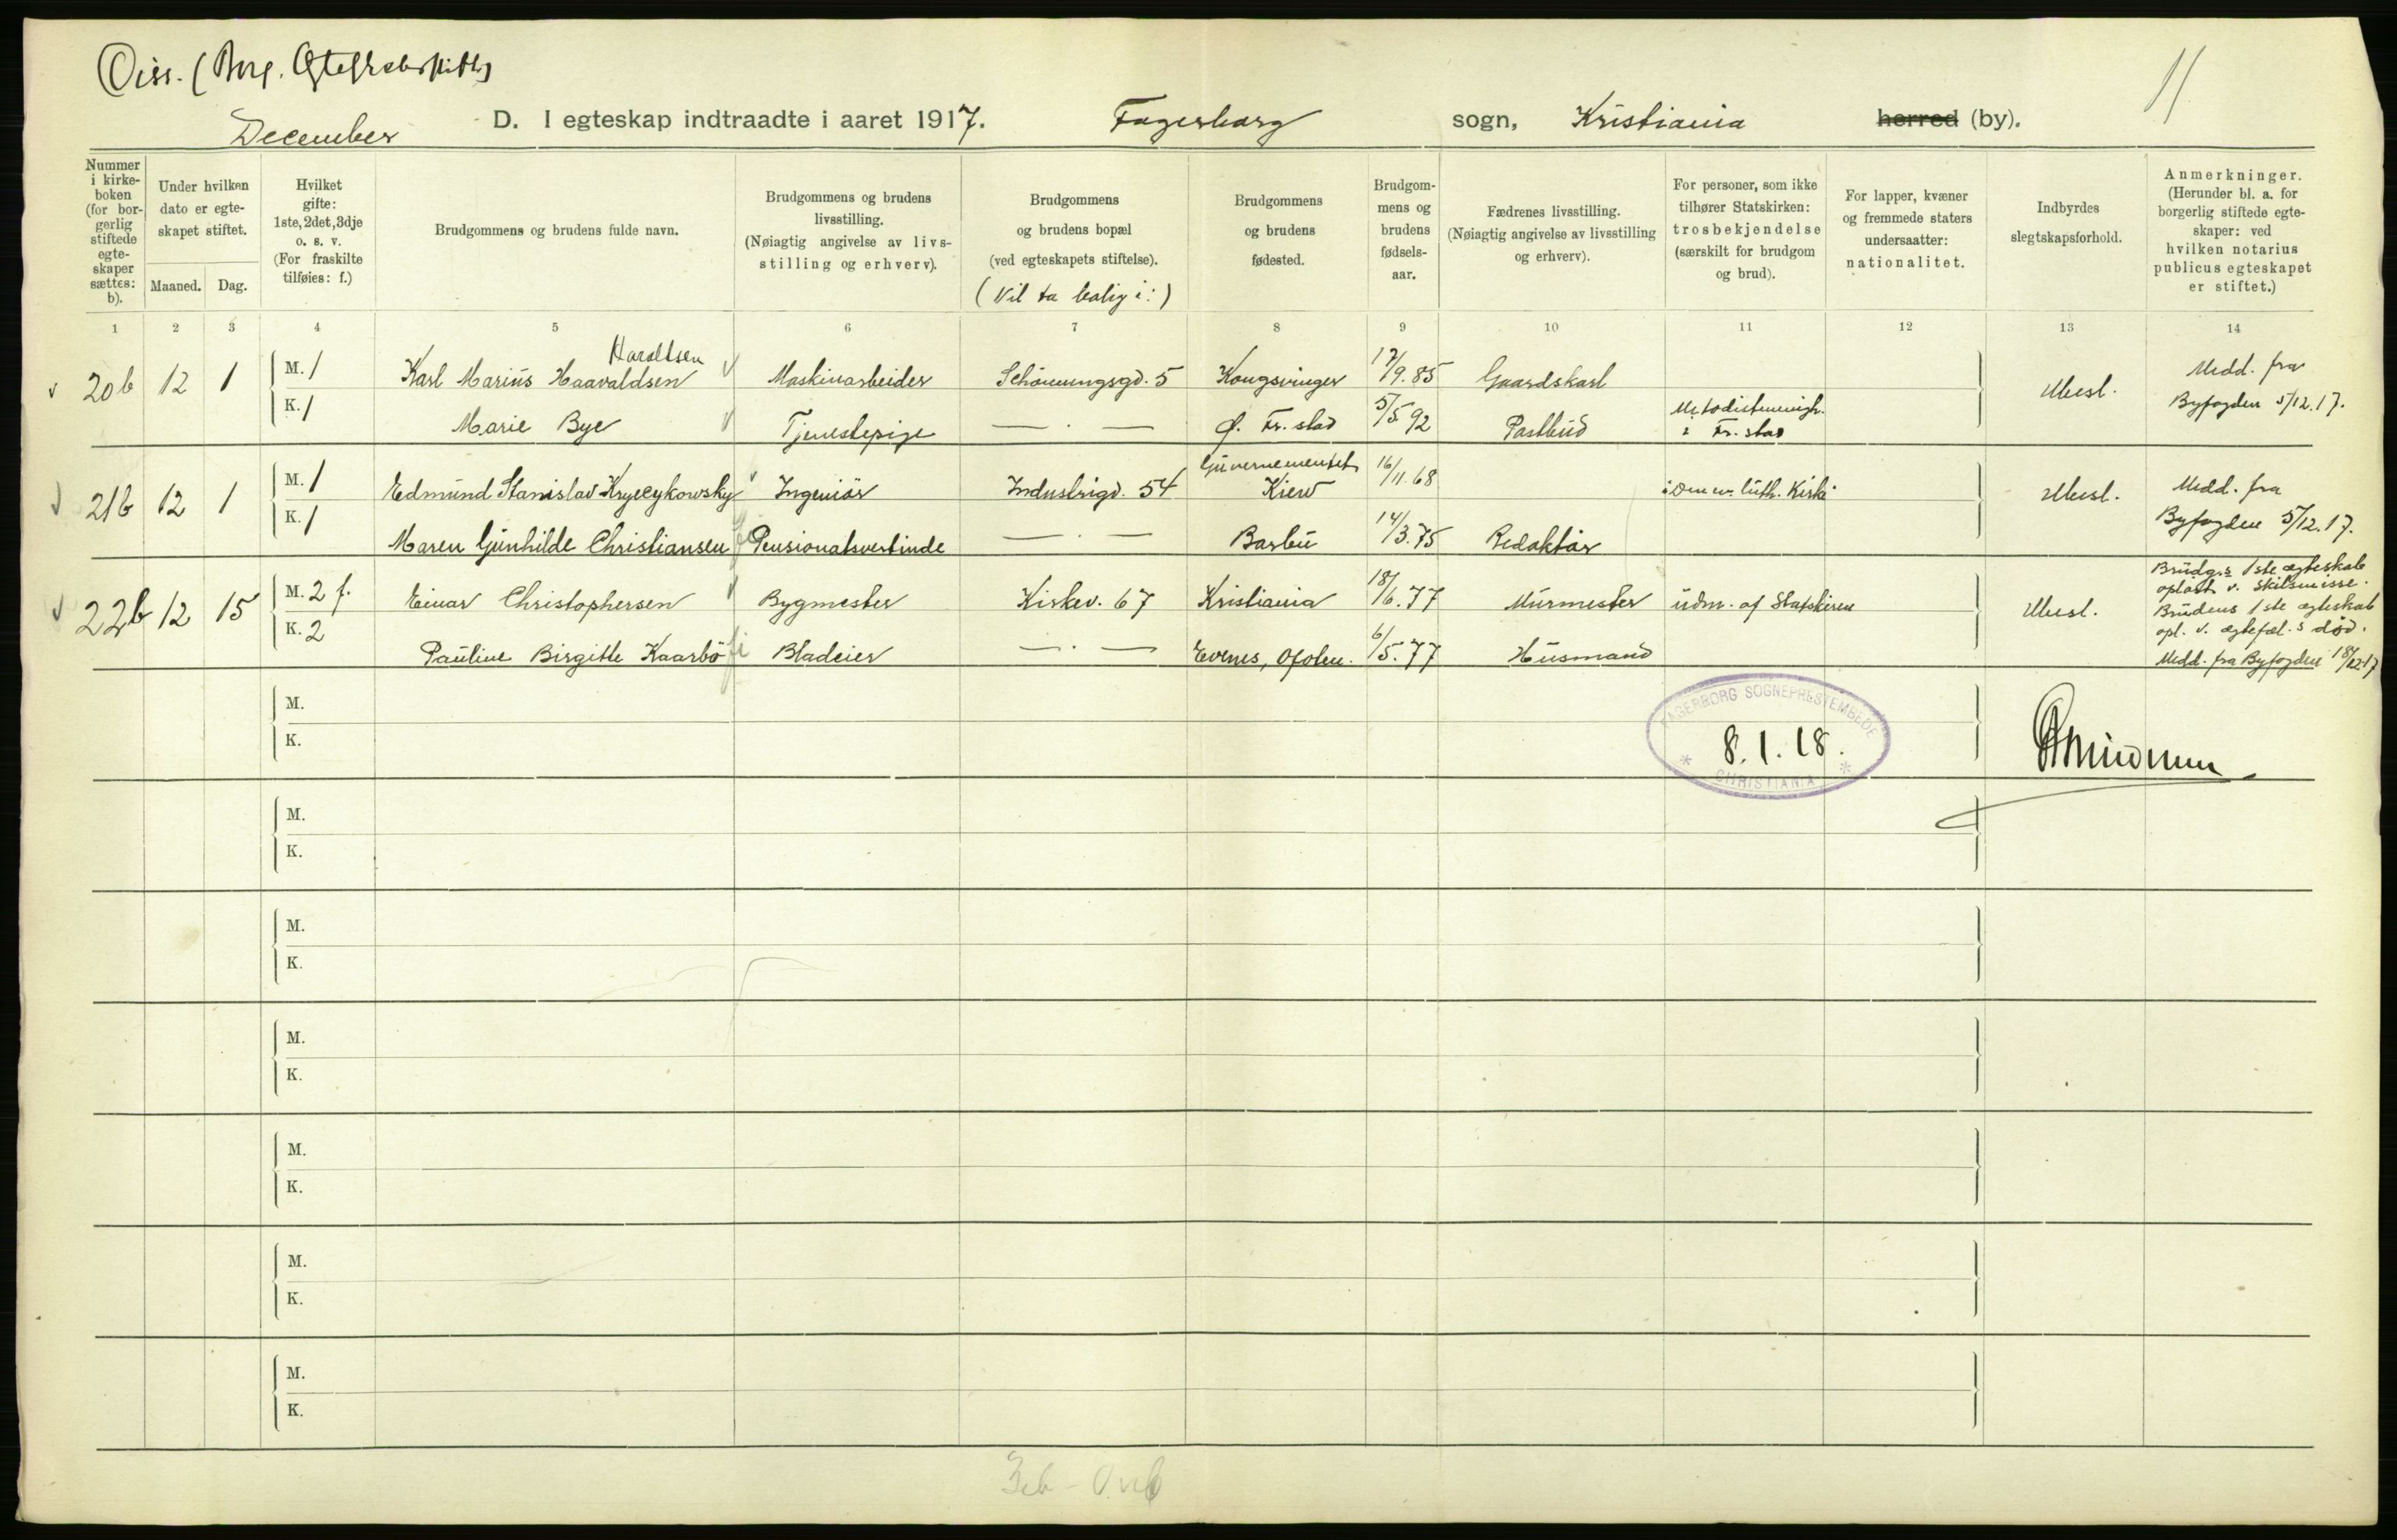 Diss. (Borg. Egteskabsstift.)
11
December D. I egteskap indtraadte i aaret 1917. Fagerborg sogn, Kristiania herred (by).
Nummer i kirkeboken (for borgerlig stiftede egteskaper sættes: b).
Under hvilken dato er egteskapet stiftet.
Maaned. Dag.
Hvilket gifte: 1ste, 2det, 3dje o. s. v. (For fraskilte tilføies: f.)
Brudgommens og brudens fulde navn.
Brudgommens og brudens livsstilling. (Nøiagtig angivelse av livsstilling og erhverv).
Brudgommens og brudens bopæl (ved egteskapets stiftelse).
(Vil ta bolig i:)
Brudgommens og brudens fødested.
Brudgommens og brudens fødselsaar.
Fædrenes livsstilling. (Nøiagtig angivelse av livsstilling og erhverv).
For personer, som ikke tilhører Statskirken: trosbekjendelse (særskilt for brudgom og brud).
For lapper, kvæner og fremmede staters undersaatter: nationalitet.
Indbyrdes slegtskapsforhold.
Anmerkninger. (Herunder bl. a. for borgerlig stiftede egteskaper: ved hvilken notarius publicus egteskapet er stiftet.)
1 2 3 4 5 6 7 8 9 10 11 12 13 14
Haraldsen
20b 12 1 M. 1 Karl Marius Haavaldsen Maskinarbeider Schönningsgd. 5 Kongsvinger 17/9.85 Gaardskarl Ubesl. Medd. fra
K. 1 Marie Bye Tjenestepige — . — Ø. Fr.stad 5/5 92 Postbud Metodistmenigh. i Fr.stad Byfogden 5/12.17.
21b 12 1 M. 1 Edmund Stanislav Kryczykowsky Ingeniör Industrigd. 54 Guvernementet Kiew 16/11.68 luth. Kirke Ubesl. Medd. fra
K. 1 Maren Gunhilde Christiansen Pensionatsvertinde — . — Barbu 14/3.75 Redaktör Byfogden 5/12.17.
22b 12 15 M. 2 f. Einar Christophersen Bygmester Kirkev. 67 Kristiania 18/6.77 Murmester udm. af Statskirken Ubesl. Brudg.s 1ste ægteskab
opløst v. Skilsmisse.
Brudens 1ste ægteskab
opl. v. ægtefæl.s død.
K. 2 Pauline Birgitte Kaarbö Bladeier — . — Evenes, Ofoten. 6/5.77 Husmand Medd. fra Byfogden 18/12.17
M.
K.
FAGERBORG SOGNEPRESTEMBEDE
8.1.18.
* CHRISTIANIA *
M.
K.
M.
K.
M.
K.
M.
K.
M.
K.
M.
K.